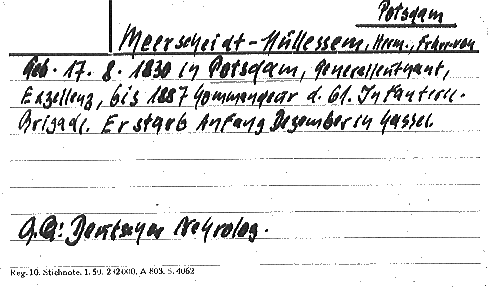 Potsdam
Meerscheidt-Hüllessem, Herm., Frhr. von
Geb. 17. 8. 1830 in Potsdam, Generalleutnant,
Exzellenz, bis 1887 Kommandeur d. 61. Infanterie-
Brigade. Er starb Anfang Dezember in Kassel.
Deutscher Nekrolog.
Reg. 10. Stichnote. 1. 50. 2 /2000. A 803. S. 4062